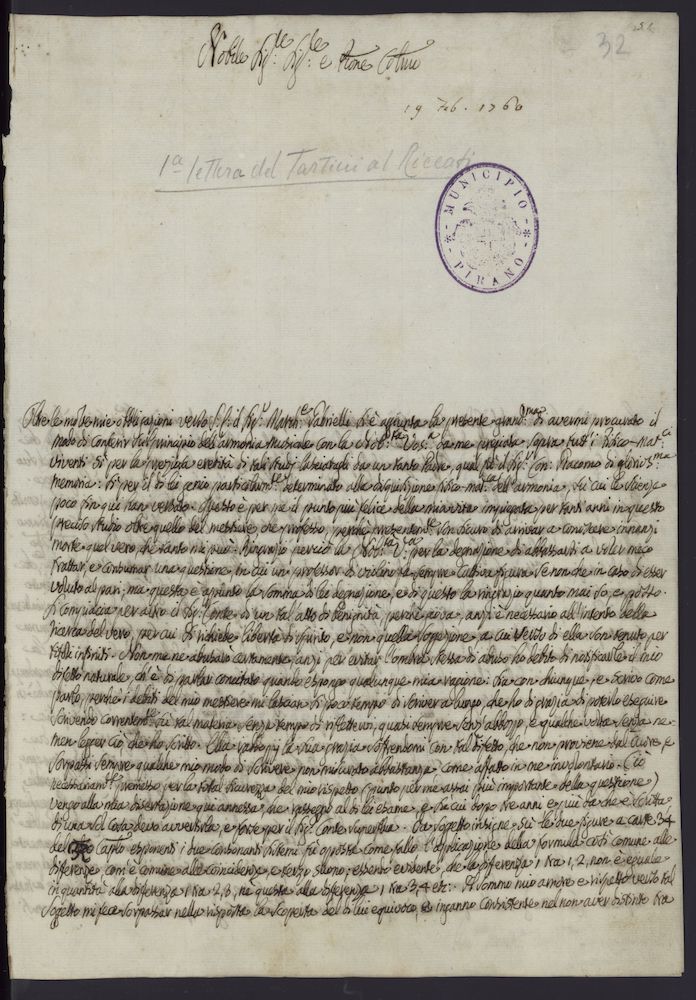 32
Nobile Sig.re Sig.re e Prone Colmo
19 Feb. 1760
1a lettera del Tartini al Riccati
MUNICIPIO
PIRANO
Oltre le molte mie obbligazioni verso il Sig.r si è aggiunta la presente di avermi procurato il
modo di conferir sul principio dell'armonia musicale con la da me pregiata sopra tutti i
viventi sì per la eredità di tali studj lasciatagli da un tanto Padre, qual fù il Sig.r Con. Giacomo di
memoria: sì per il di lei genio determinato alla dell'armonia, su cui le scienze
poco fin qui han versato. Questo è per me il punto più felice della mia vita impiegata per tanti anni in questo
preciso studio oltre quello del mestiere che professo, perché son sicuro di arrivar a conoscere innanzi
morte quel vero, che tanto Ringrazio perciò la per la degnazione di abbassarsi a voler meco
trattar, e consumar una questione, in cui un professor di violino fa sempre cattiva figura se non che in caso di esser
veduto al pari; ma questa è appunto la somma di lei degnazione, e di questo la ringrazio quanto mai so, e posso.
Si compiaccia per altro il Sig.r Conte di un tal atto di benignità, perché giova, anzi è necessario all'intento della
ricerca del vero, per cui si richiede libertà di spirito, e non quella soggezione, a cui verso di ella son tenuto per
titoli infiniti. Non me ne abusarò certamente, anzi per evitar l'ombra stessa di abuso ho debito di notificarle il mio
difetto naturale, ch'è di parlar concitato quando espongo qualunque mia ragione: sia con chiunque, e scrivo come
parlo, perché i debiti del mio mestiere mi lascian sì poco tempo di scriver a lungo, che ho di grazia di poterlo eseguire
scrivendo correntem.e su tal materia senza tempo di riflettervi, quasi sempre senz'abbozzo, e qualche volta senza ne-
men legger ciò che ho scritto. Ella la sua grazia soffrendomi con tal difetto, che non proviene dal cuore, e
sorpassi sempre qualche mio modo di scrivere non misurato abbastanza, come affatto in me involontario. Ciò
premesso per la total sicurezza del mio rispetto (punto per me assai più importante della questione)
vengo alla mia dissertazione qui annessa, che rassegno al di lei esame, e su cui dopo tre anni e più da che è scritta
di una sol cosa devo avvertirla, e forse per il Sig.r Conte superflua. Da soggetto insigne sù le due figure a carte 34
del capo esponenti i due consonanti sistemi fù opposta come fallo l'applicazione della formula così comune alle
differenze com'è comune alle coincidenze, e terzo suono; essendo evidente, che la differenza 1 tra 1, 2, non è eguale
in quantità alla differenza 1 tra 2, 3, ne questa alla differenza 1 tra 3, 4 etc: Il sommo mio amore e rispetto verso tal
soggetto mi fece sorpassar nella risposta la scoperta del di lui equivoco, e inganno consistente nel non aver distinto tra